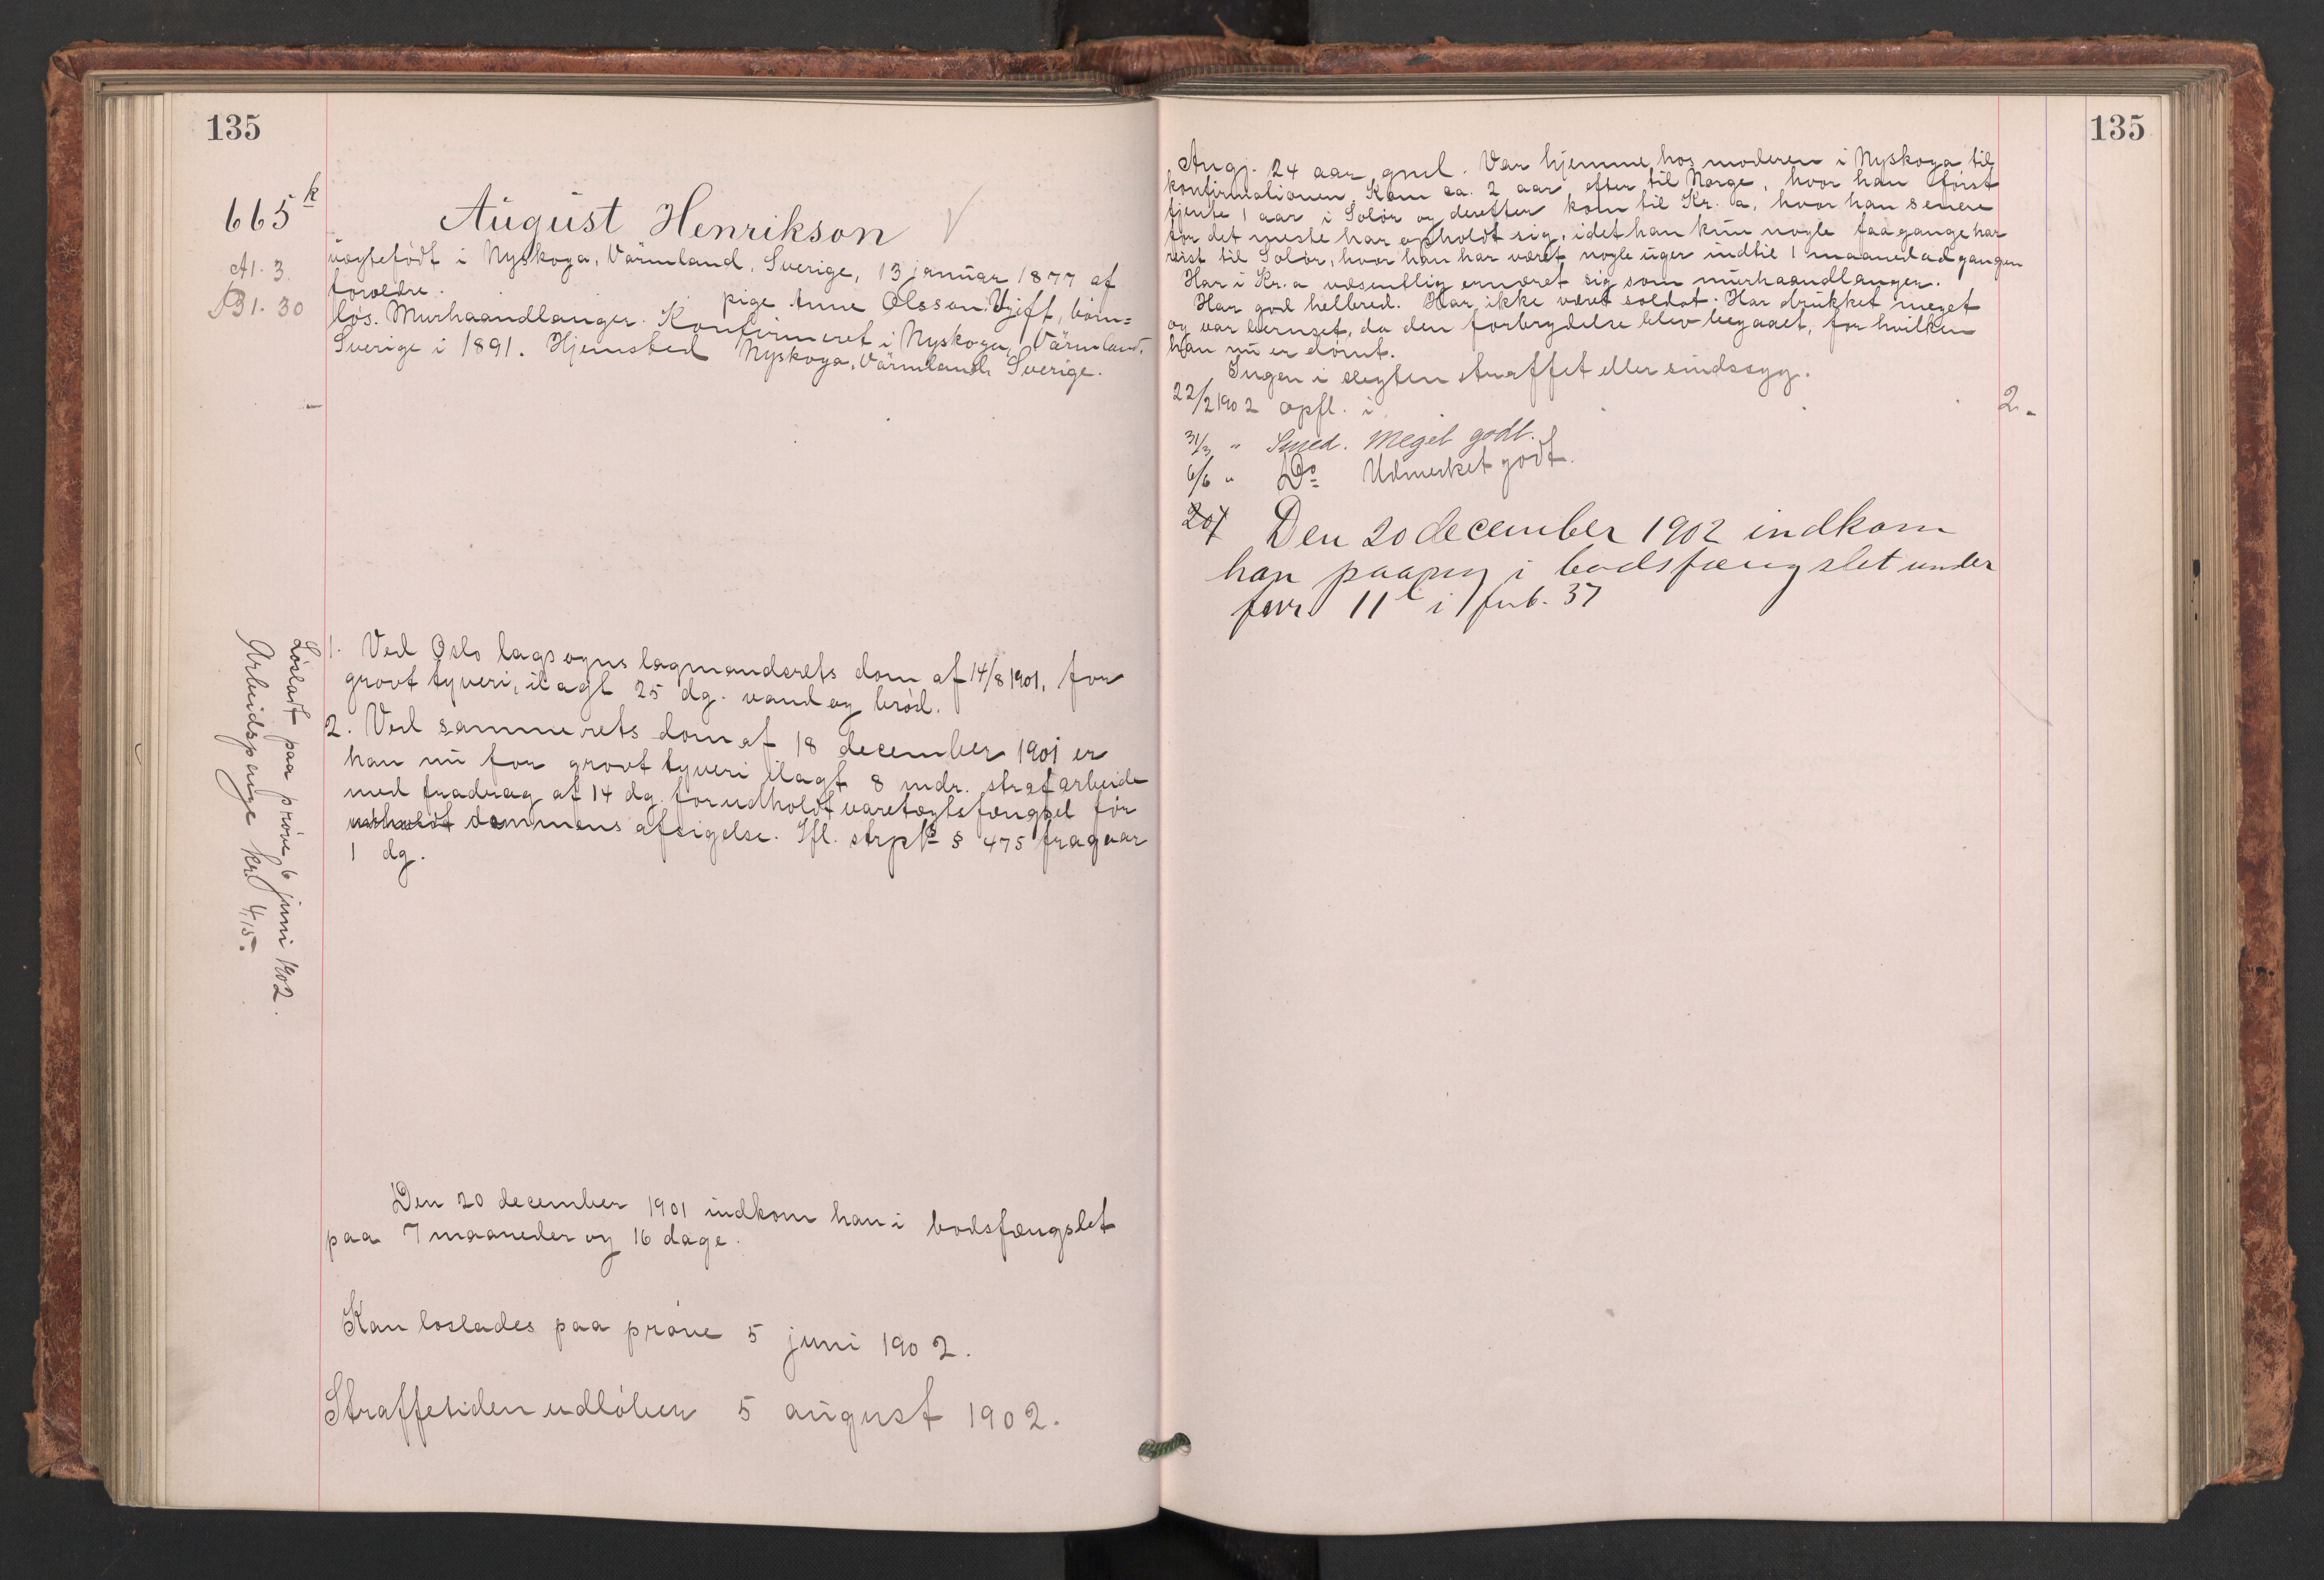 135
665 k
August Henrikson
Al. 3.
Bl. 30
uægtefødt i Nyskoga, Värmland, Sverige, 13 januar 1877 af
forældre. pige Anne Olsson. Ugift, barn=
løs. Murhaandlanger. Konfirmeret i Nyskoga, Värmland,
Sverige i 1891. Hjemsted Nyskoga, Värmland, Sverige.
1. Ved Oslo lagsogns lagmandsrets dom af 14/8 1901, for
grovt tyveri, ilagt 25 dg. vand og brød.
2. Ved samme rets dom af 18 december 1901 er
han nu for grovt tyveri ilagt 8 mdr. strafarbeide
med fradrag af 14 dg. for udholdt varetægtsfængsel før
udholdt dommens afsigelse. Ifl. strpl § 475 fragaar
1 dg.
Løsladt paa prøve 6 juni 1902.
Arbeidspenge kr. 4,15.
Den 20 december 1901 indkom han i bodsfængslet
paa 7 maaneder og 16 dage.
Kan løslades paa prøve 5 juni 1902.
Straffetiden udløber 5 august 1902.
135
Angj. 24 aar gml. Var hjemme hos moderen i Nyskoga til
konfirmationen. Kom ca. 2 aar efter til Norge, hvor han først
tjente 1 aar i Solør og derefter kom til Kr.a, hvor han senere
for det meste har opholdt sig, idet han kun nogle faa gange har
reist til Solør, hvor han har været nogle uger indtil 1 maaned ad gangen
Har i Kr.a væsentlig ernæret sig som murhaandlanger.
Har god helbred. Har ikke været soldat. Har drukket meget
og var beruset, da den forbrydelse blev begaaet, for hvilken
han nu er dømt.
Ingen i slegten straffet eller sindssyg.
22/2 1902 opfl. i 2.
31/3 " Smed. Meget godt.
6/6 " Do Udmerket godt.
20/ Den 20 december 1902 indkom
han paany i bodsfængslet under
11 i 37